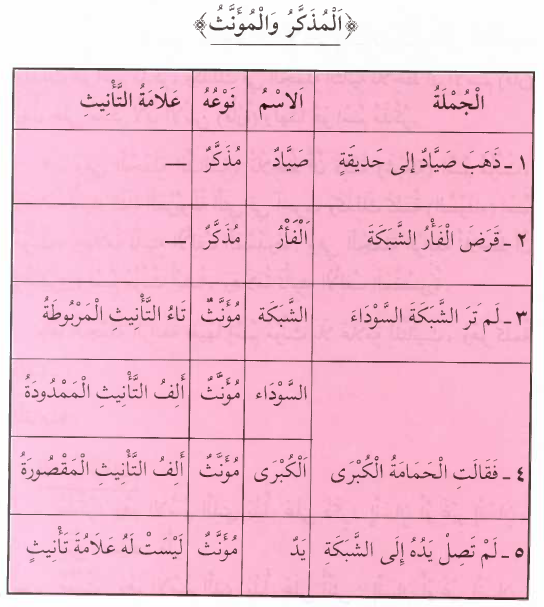 ﴿اَلْمُذَكَّرُ وَالْمُؤَنَّثُ﴾
الْجُمْلَةُ اَلاسْمُ نَوْعُهُ عَلَامَةُ التَّأْنِيثِ
١ - ذَهَبَ صَيَّادٌ إلى حَدِيقَةٍ صَيَّادٌ مُذَكَّرٌ —
٢ - قَرَضَ الْفَأْرُ الشَّبَكَةَ اَلْفَأْرُ مُذَكَّرٌ —
٣ - لَم تَرَ الشَّبَكَةَ السَّوْدَاءَ الشَّبَكَة مُؤَنَّثٌ تَاءُ التَّأْنِيثِ الْمَرْبُوطَةُ
السَّوْدَاء مُؤَنَّثٌ أَلِفُ التَّأْنِيثِ الْمَمْدُودَةُ
٤ - فَقَالَتِ الْحَمَامَةُ الْكُبْرَى اَلْكُبْرَى مُؤَنَّثٌ أَلِفُ التَّأْنِيثِ الْمَقْصُورَةُ
٥ - لَمْ تَصِلْ يَدُهُ إِلَى الشَّبَكَةِ يَدٌ مُؤَنَّثٌ لَيْسَتْ لَهُ عَلَامَةُ تَأْنِيثٍ